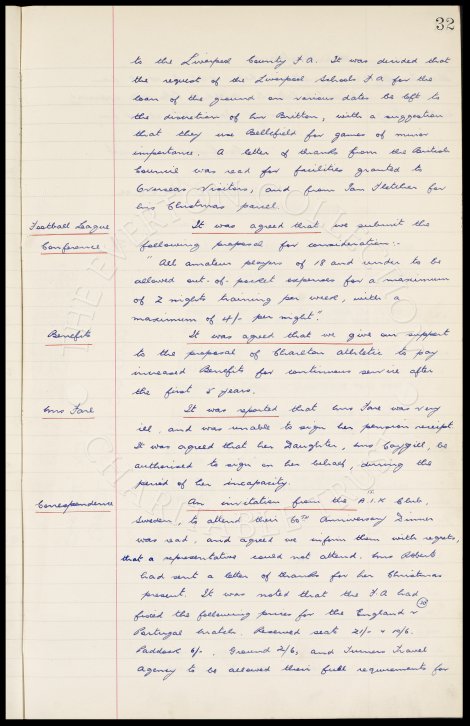 32
to the Liverpool County F.A. It was decided that
the request of the Liverpool Schools F.A for the
loan of the ground on various dates be left to
the discretion of Mr Britton, with a suggestion
that they use Bellefield for games of minor
importance. A letter of thanks from the British
Council was read for facilities granted to
Overseas Visitors, and from Ian Fletcher for
his Christmas parcel.
Football League It was agreed that we submit the
Conference. following proposal for consideration:-
"All amateur players of 18 and under to be
allowed out-of-pocket expenses for a maximum
of 2 nights training per week, with a
maximum of 4/- per night".
Benefits It was agreed that we give our support
to the proposal of Charlton Athletic to pay
increased Benefits for continuous service after
the first 5 years.
Mrs Fare It was reported that Mrs Fare was very
ill, and was unable to sign her pension receipt.
It was agreed that her Daughter, Mrs Coygill, be
authorised to sign on her behalf, during the
period of her incapacity.
Correspondence An invitation from the A.I.K Club,
Sweden, to attend their 60th Anniversary Dinner
was read, and agreed we inform them with regrets,
that a representative could not attend. Mrs Roberts
had sent a letter of thanks for her Christmas
present. It was noted that the F.A had
fixed the following prices for the England v
Portugal match. Reserved seats 21/- & 10/6.
Paddock 6/-. Ground 2/6, and Turners Travel
Agency to be allowed their full requirements for